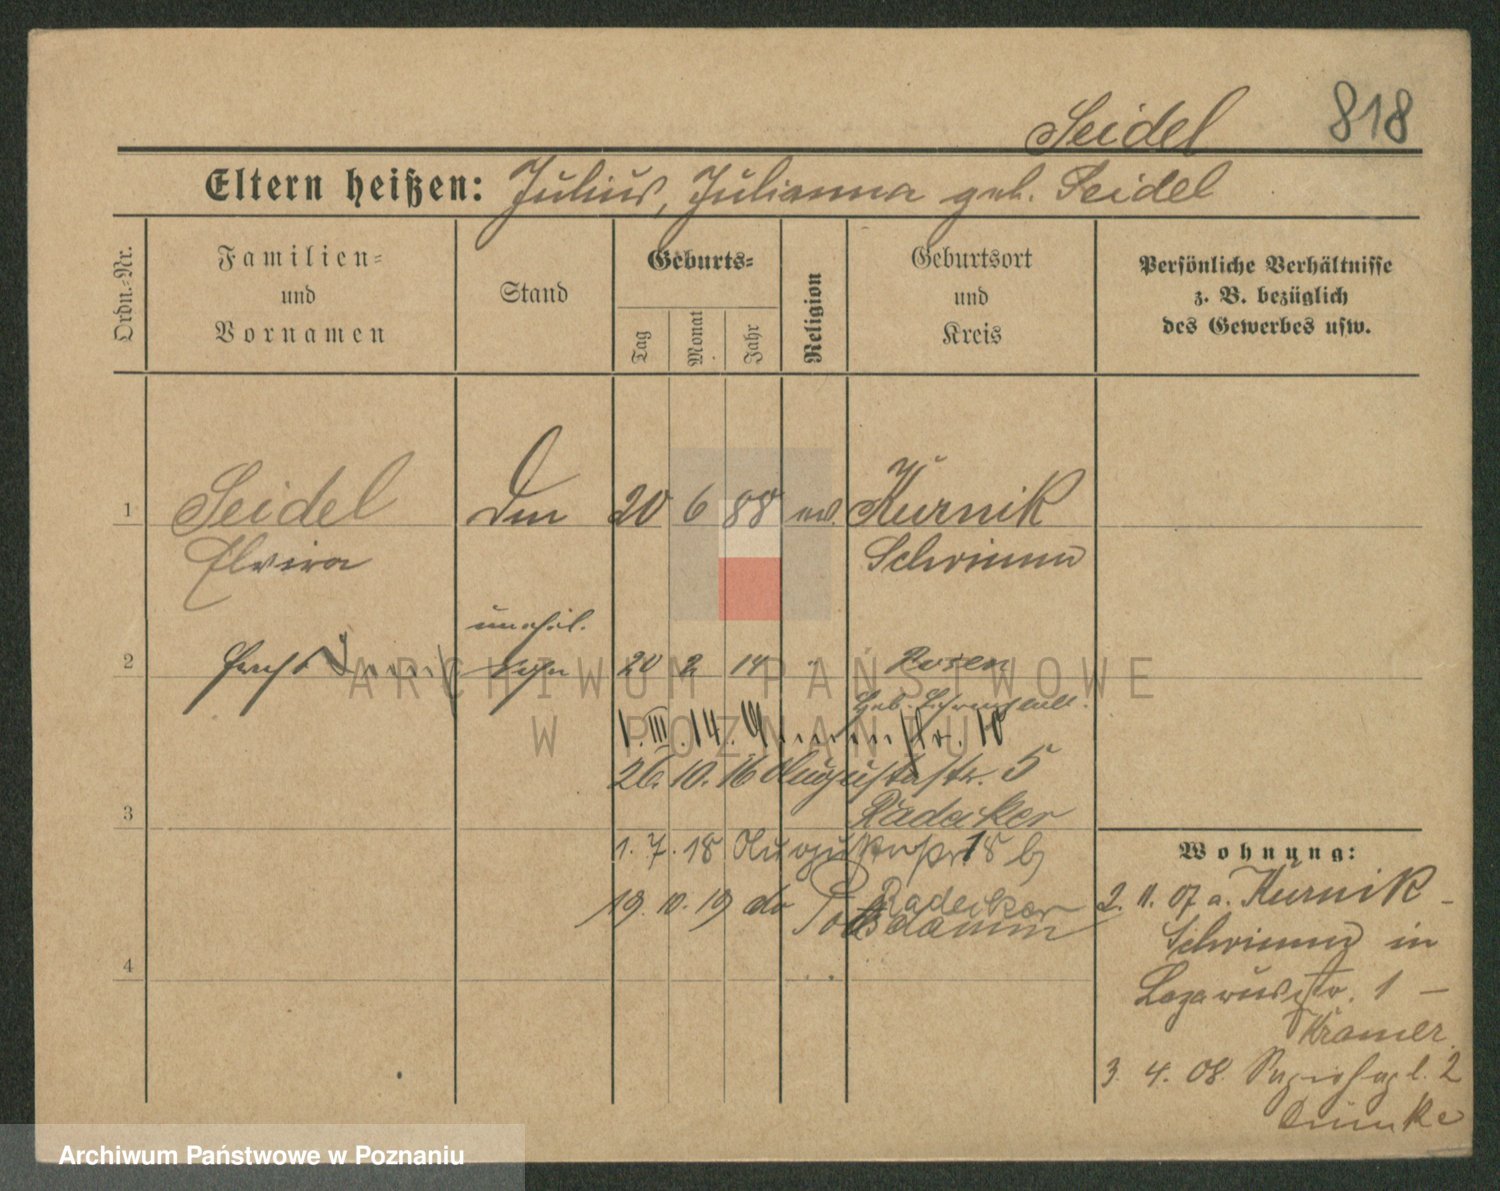 Seidel 818
Eltern heißen: Julius, Julianna geb. Seidel
Ordn.-Nr.
Familien-
und
Vornamen
Stand
Geburts-
Tag
Monat
Jahr
Religion
Geburtsort
und
Kreis
Persönliche Verhältnisse
z. B. bezüglich
des Gewerbes usw.
1 Seidel 20 6 88 ev. Kurnik
Elvira Schrimm
unehel.
2 Sohn 20 2 14 " Posen
1. III. 14. Nr. 10
26. 10. 16 Augustastr. 5
3 Radecker
1. 7. 18
19. 10. 19 do Radecker
Potsdam
4
Wohnung:
2. 11. 07 a. Kurnik -
Schrimm in
Lazarusstr. 1 -
Kramer
3. 4. 08. 2
ARCHIWUM PAŃSTWOWE
W POZNANIU
Archiwum Państwowe w Poznaniu